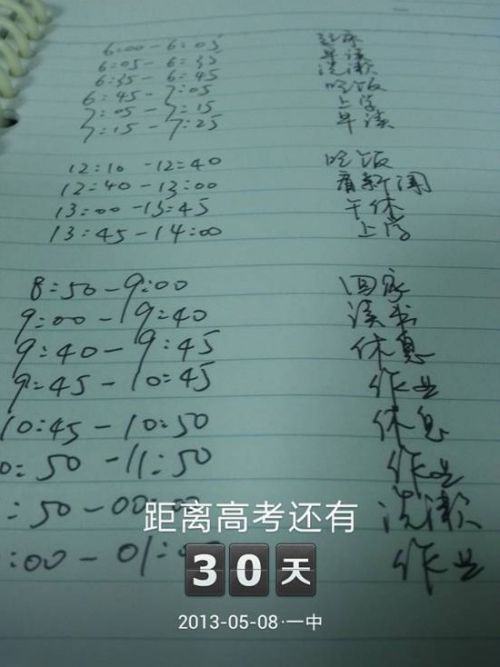 6:00 - 6:05 起床
6:05 - 6:35 早读
6:35 - 6:45 洗漱
6:45 - 7:05 吃饭
7:05 - 7:15 上学
7:15 - 7:25 早读
12:10 - 12:40 吃饭
12:40 - 13:00 看新闻
13:00 - 13:45 午休
13:45 - 14:00 上学
8:50 - 9:00 回家
9:00 - 9:40 读书
9:40 - 9:45 休息
9:45 - 10:45 作业
10:45 - 10:50 休息
0:50 - 11:50 作业
:50 - 00: 洗漱
:00 - 01: 作业
距离高考还有
30天
2013-05-08·一中